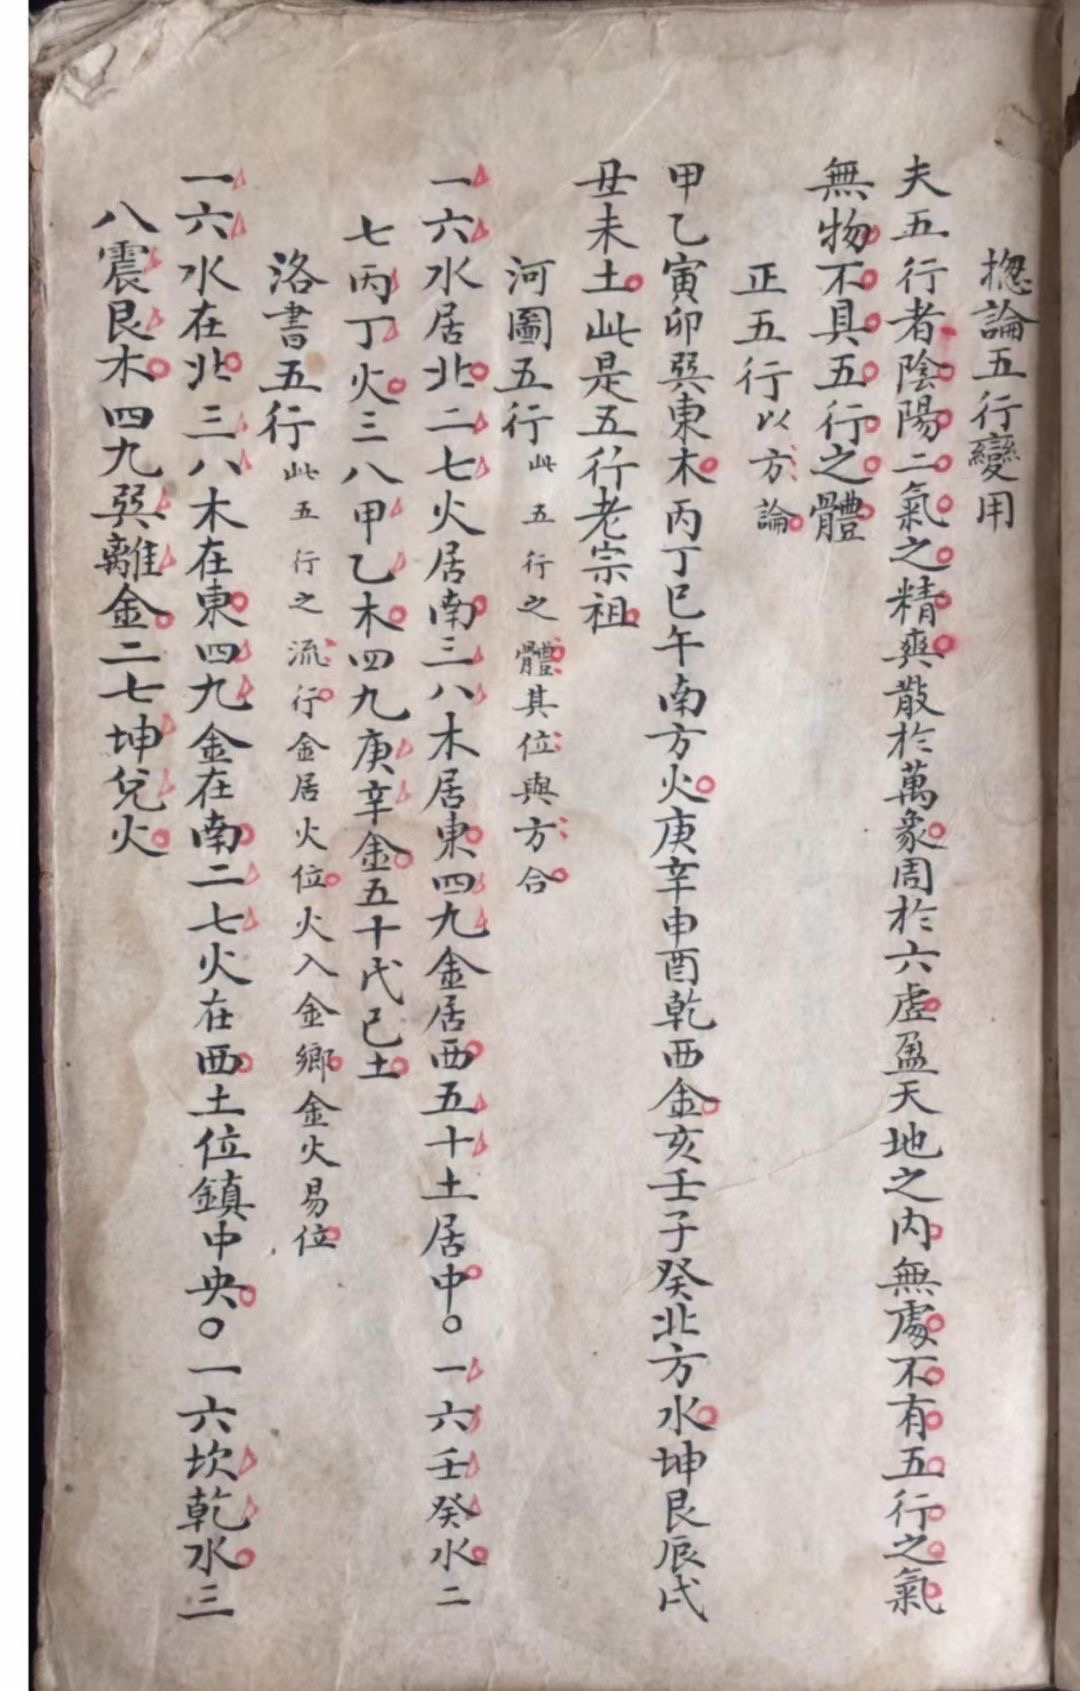 揔論五行變用
夫五行者陰陽二氣之精爽散於萬象周於六虛盈天地之内無處不有五行之氣
無物不具五行之體
正五行以方論
甲乙寅卯巽東木丙丁巳午南方火庚辛申酉乾西金亥壬子癸北方水坤艮辰戌
丑未土此是五行老宗祖
河圖五行此五行之體其位與方合
一六水居北二七火居南三八木居東四九金居西五十土居中○一六壬癸水二
七丙丁火三八甲乙木四九庚辛金五十戊己土
洛書五行此五行之流行金居火位火入金鄉金火易位
一六水在北三八木在東四九金在南二七火在西土位鎮中央○一六坎乾水三
八震艮木四九巽離金二七坤兌火